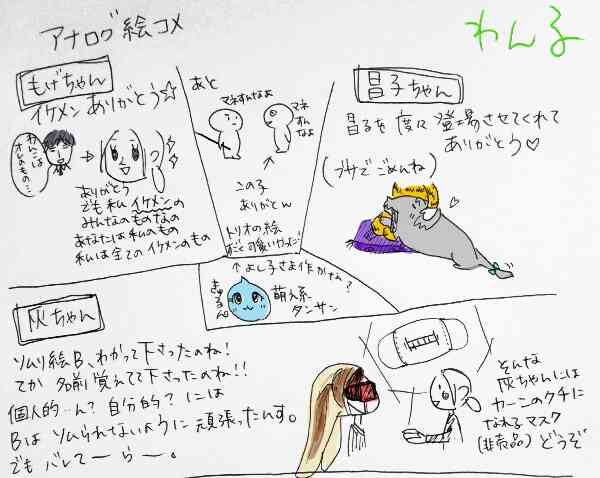 アナログ絵コメ
わん子
もげちゃん
イケメン ありがとう☆
わんこは
オレのもの…
ありがとう
でも私イケメンの
みんなのものなの
あなたは私のもの
私は全てのイケメンのもの
あと
マネすんなよ
マネ
すん
なよ
この子
ありがとん
トリオの絵
すごく可愛いかったよ
↑よし子さま作かなぁ?
きゅるん。
萌え系
タンサン
昌子ちゃん
昌子を度に登場させてくれて
ありがとう♡
(ブサでごめんね)
灰ちゃん
ソムリ絵B、わかって下さったのね!
てか 名前覚えてて下さったのね!!
個人的…ん?自分的?には
Bはソムられないように頑張ったんす。
でもバレてーらー。
そんな
灰ちゃんには
カーンのクチに
なれるマスク
(非売品)どうぞ